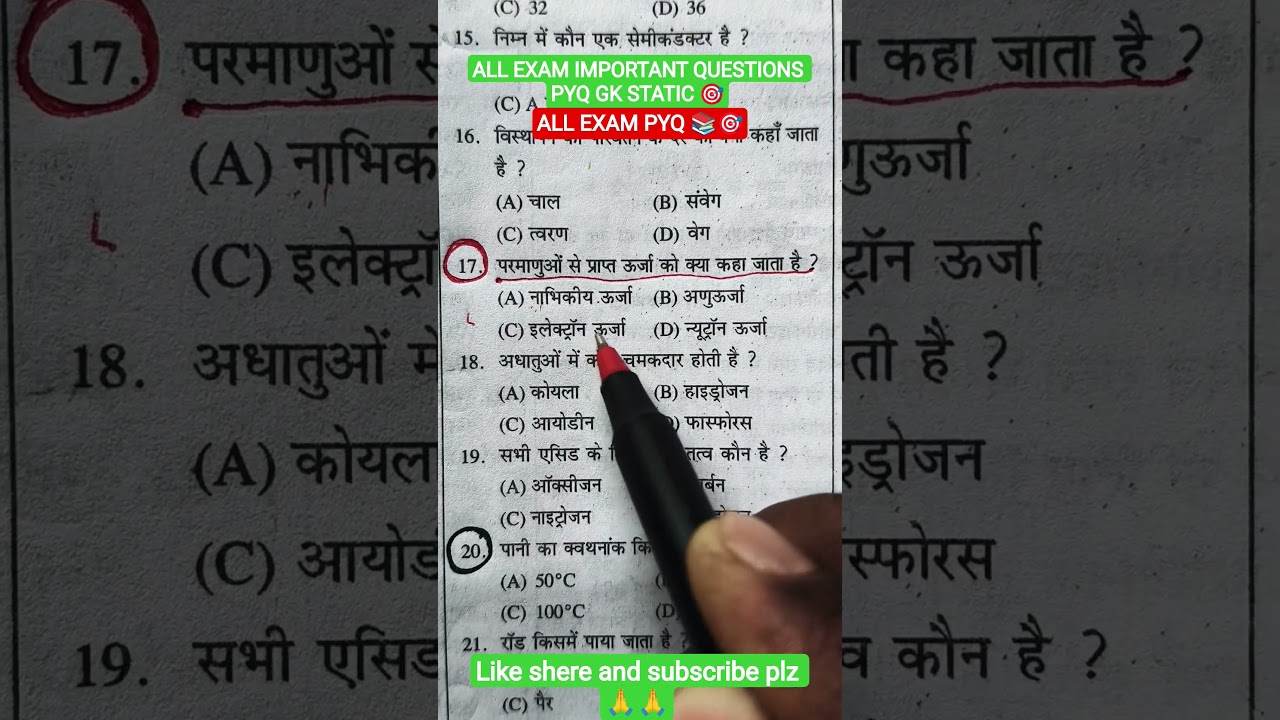 (C) 32 (D) 36
15. निम्न में कौन एक सेमीकंडक्टर है ?
ALL EXAM IMPORTANT QUESTIONS
PYQ GK STATIC 🎯
(C) A
ALL EXAM PYQ 📚🎯
16. कहाँ जाता
है ?
(A) चाल (B) संवेग
(C) त्वरण (D) वेग
17. परमाणुओं से प्राप्त ऊर्जा को क्या कहा जाता है ?
(A) नाभिकीय ऊर्जा (B) अणुऊर्जा
(C) इलेक्ट्रॉन ऊर्जा (D) न्यूट्रॉन ऊर्जा
18. अधातुओं में चमकदार होती है ?
(A) कोयला (B) हाइड्रोजन
(C) आयोडीन फास्फोरस
19. सभी एसिड के तत्व कौन है ?
(A) ऑक्सीजन
(C) नाइट्रोजन
20. पानी का क्वथनांक
(A) 50°C
(C) 100°C (D)
21. रॉड किसमें पाया जाता है ?
Like shere and subscribe plz
🙏 🙏
(C) पैर
17. परमाणुओं कहा जाता है ?
(A)
(C)
18. अधातुओं है ?
(A) 
(C)
19. सभी एसिड कौन है ?